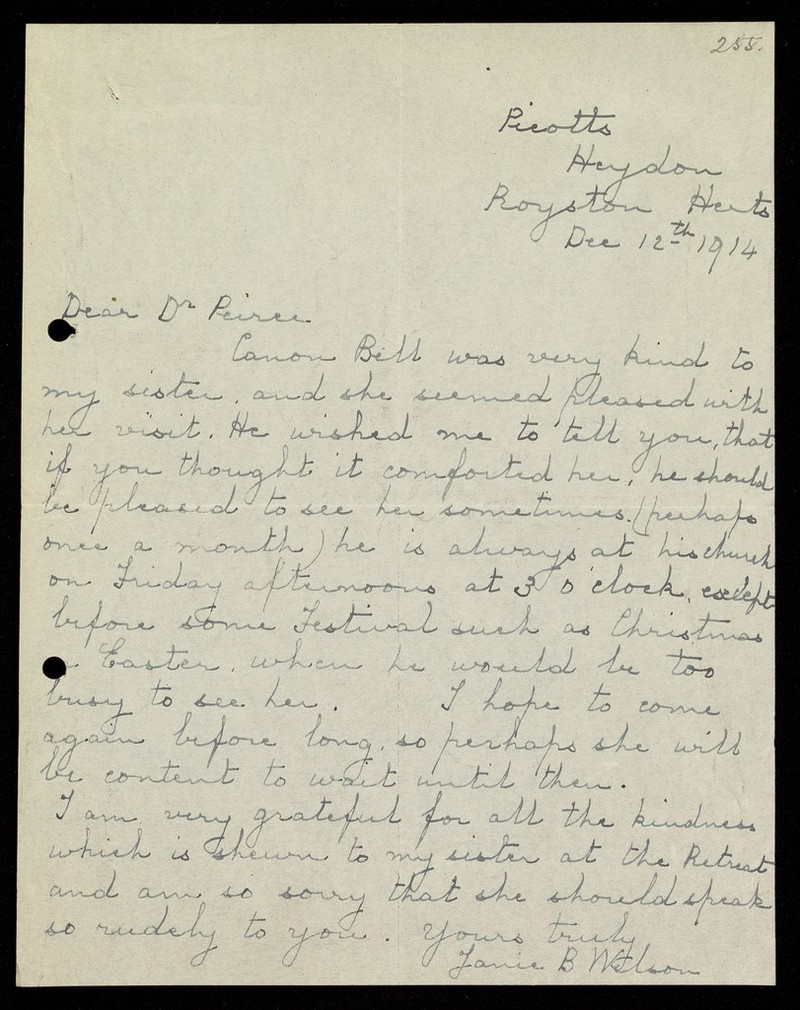 255.
Picotts
Heydon
Royston Herts
Dec 12th 1914
Dear Dr Peirce
Canon Bell was very kind to
my sister, and she seemed pleased with
her visit. He wished me to tell you, that
if you thought it comforted her, he should
be pleased to see her sometimes. (perhaps
once a month) he is always at his church
on Friday afternoons at 3 o'clock, except
before some Festival such as Christmas
Easter, when he would be too
busy to see her. I hope to come
again before long, so perhaps she will
be content to wait until then.
I am very grateful for all the kindness
which is shewn to my sister at the Retreat
and am so sorry that she should speak
so rudely to you. Yours truly
Janie B Wilson